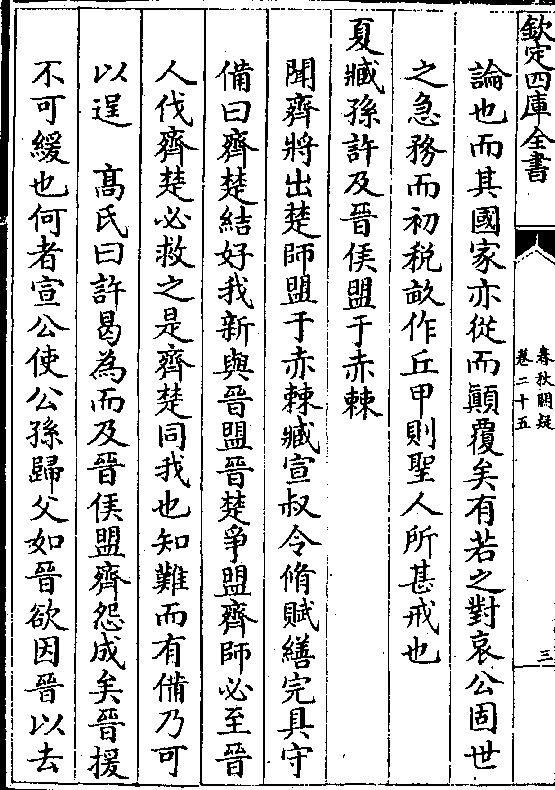 欽定四庫全書
春秋闕疑
卷二十五
三
論也而其國家亦從而顛覆矣有若之對哀公固世
之急務而初稅畝作丘甲則聖人所甚戒也
夏臧孫許及晉侯盟于赤棘
聞齊將出楚師盟于赤棘臧宣叔令脩賦繕完具守
備曰齊楚結好我新與晉盟晉楚爭盟齊師必至晉
人伐齊楚必救之是齊楚同我也知難而有備乃可
以逞　髙氏曰許曷為而及晉侯盟齊怨成矣晉援
不可緩也何者宣公使公孫歸父如晉欲因晉以去